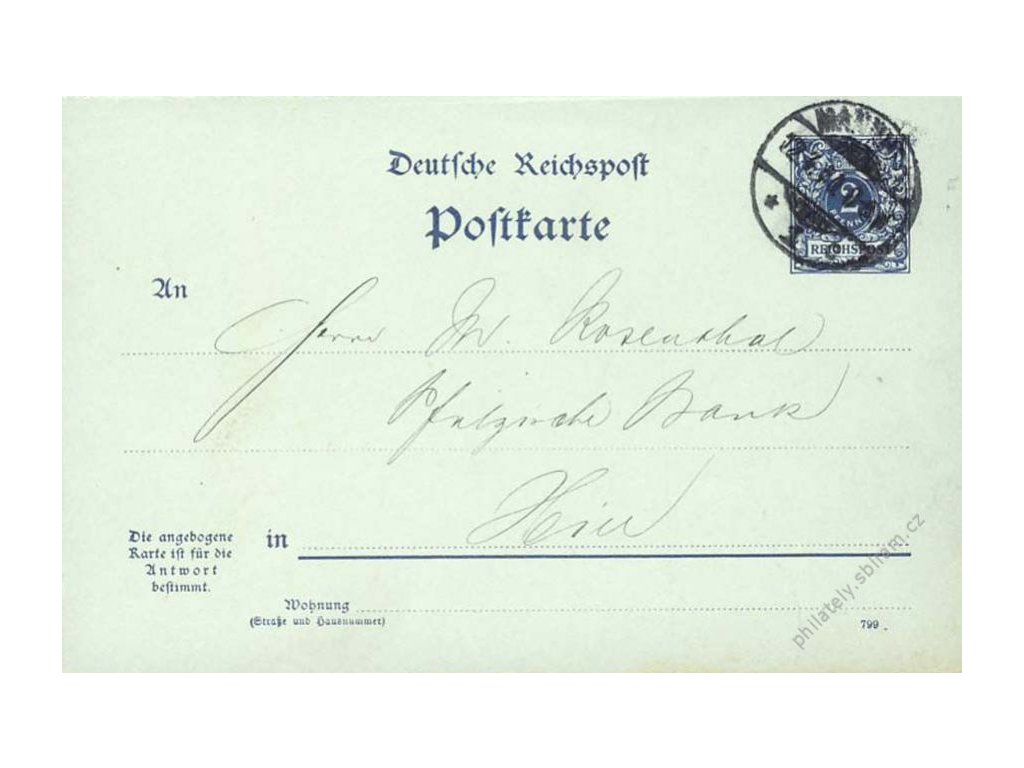 Deutsche Reichspost
Postkarte
2
REICHSPOST
An
Herrn M. Rosenthal
Pfälzische Bank
Hier
in
Die angebogene
Karte ist für die
Antwort
bestimmt.
Wohnung
(Straße und Hausnummer)
799
philately.sbliram.cz